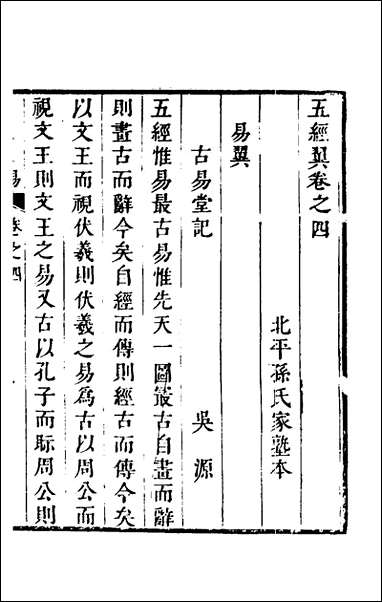 五經翼卷之四
北平孫氏家塾本
易翼
古易堂記 吳源
五經惟易最古易惟先天一圖最古自畫而辭
則畫古而辭今矣自經而傳則經古而傳今矣
以文王而視伏羲則伏羲之易爲古以周公而
視文王則文王之易又古以孔子而眎周公則
易 卷之四